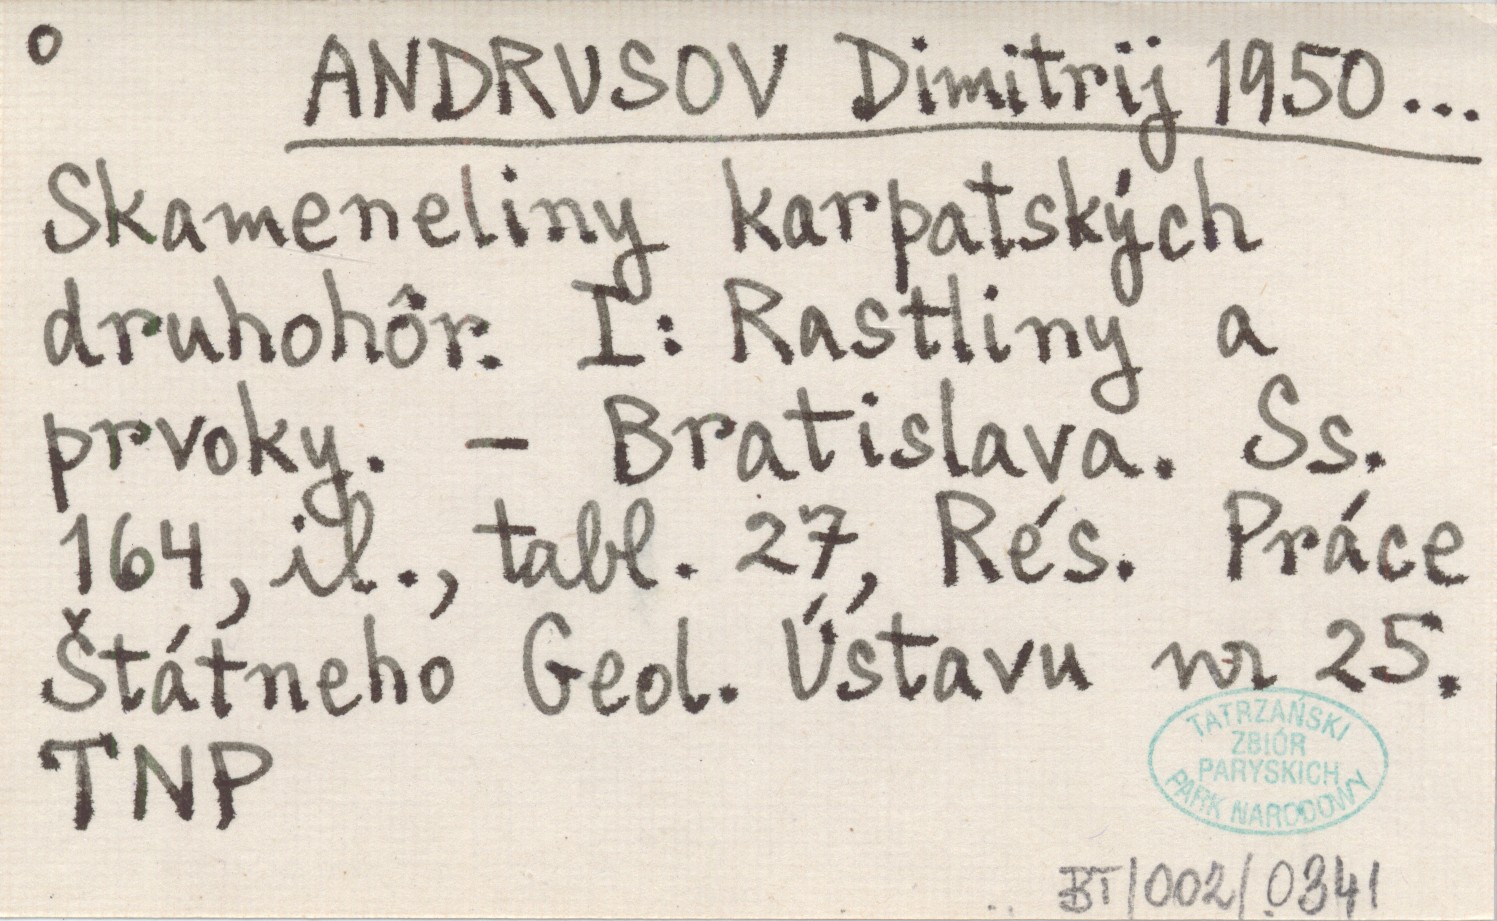 o
ANDRUSOV Dimitrij 1950...
Skameneliny karpatských
druhohôr. I: Rastliny a
prvoky. – Bratislava. Ss.
164, il., tabl. 27, Rés. Práce
Štátneho Geol. Ústavu nr 25.
TNP
TATRZAŃSKI
ZBIÓR
PARYSKICH
PARK NARODOWY
BT/002/0341